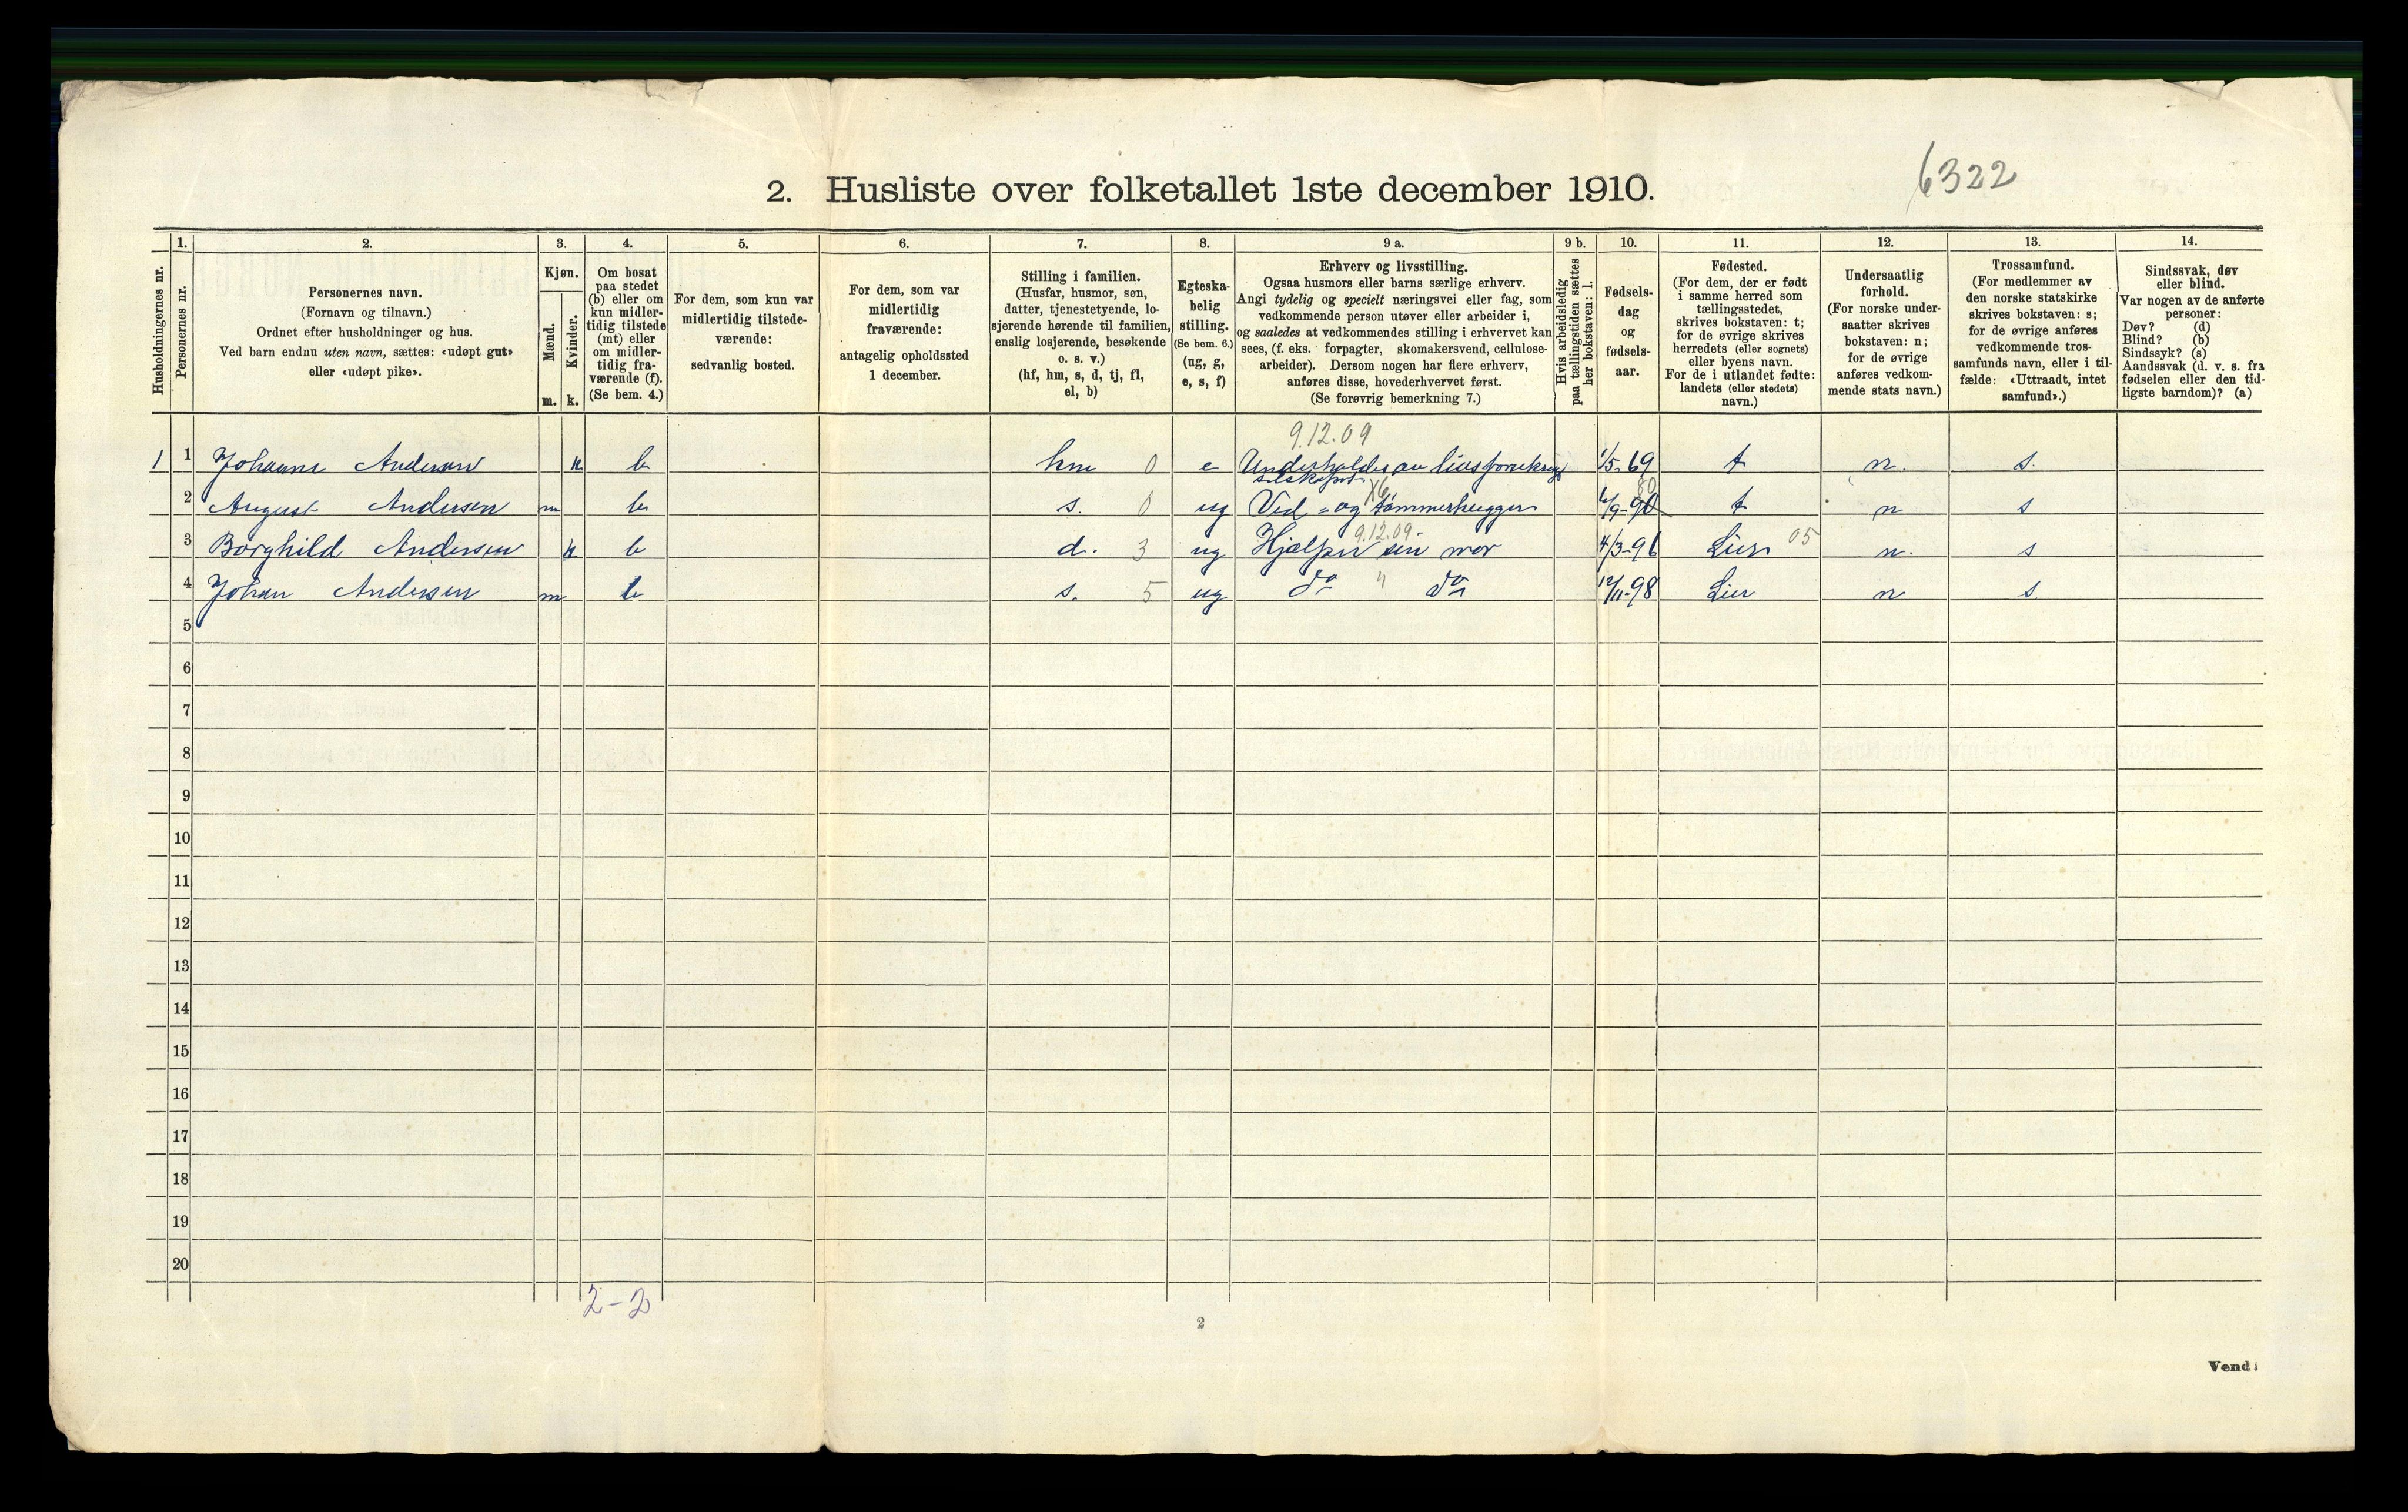 6322
2. Husliste over folketallet 1ste december 1910.
Husholdningernes nr.
1.
Personernes nr.
2.
Personernes navn.
(Fornavn og tilnavn.)
Ordnet efter husholdninger og hus.
Ved barn endnu uten navn, sættes: «udøpt gut»
eller «udøpt pike».
3.
Kjøn.
Mænd.
Kvinder.
m.
k.
4.
Om bosat
paa stedet
(b) eller om
kun midler-
tidig tilstede
(mt) eller
om midler-
tidig fra-
værende (f).
(Se bem. 4.)
5.
For dem, som kun var
midlertidig tilstede-
værende:
sedvanlig bosted.
6.
For dem, som var
midlertidig
fraværende:
antagelig opholdssted
1 december.
7.
Stilling i familien.
(Husfar, husmor, søn,
datter, tjenestetyende, lo-
sjerende hørende til familien,
enslig losjerende, besøkende
o. s. v.)
(hf, hm, s, d, tj, fl,
el, b)
8.
Egteska-
belig
stilling.
(Se bem. 6.)
(ug, g,
e, s, f)
9 a.
Erhverv og livsstilling.
Ogsaa husmors eller barns særlige erhverv.
Angi tydelig og specielt næringsvei eller fag, som
vedkommende person utøver eller arbeider i,
og saaledes at vedkommendes stilling i erhvervet kan
sees, (f. eks. forpagter, skomakersvend, cellulose-
arbeider). Dersom nogen har flere erhverv,
anføres disse, hovederhvervet først.
(Se forøvrig bemerkning 7.)
9 b.
Hvis arbeidsledig
paa tællingstiden sættes
her bokstaven: l.
10.
Fødsels-
dag
og
fødsels-
aar.
11.
Fødested.
(For dem, der er født
i samme herred som
tællingsstedet,
skrives bokstaven: t;
for de øvrige skrives
herredets (eller sognets)
eller byens navn.
For de i utlandet fødte:
landets (eller stedets)
navn.)
12.
Undersaatlig
forhold.
(For norske under-
saatter skrives
bokstaven: n;
for de øvrige
anføres vedkom-
mende stats navn.)
13.
Trossamfund.
(For medlemmer av
den norske statskirke
skrives bokstaven: s;
for de øvrige anføres
vedkommende tros-
samfunds navn, eller i til-
fælde: «Uttraadt, intet
samfund».)
14.
Sindssvak, døv
eller blind.
Var nogen av de anførte
personer:
Døv? (d)
Blind? (b)
Sindssyk? (s)
Aandssvak (d. v. s. fra
fødselen eller den tid-
ligste barndom)? (a)
9.12.09
1 1 Johanne Andersen k b hm 0 e Underholdes av livsforsikrings 1/5-69 t n. s.
selskapet
X6 80
2 August Andersen m b s. 0 ug Ved- og tømmerhugger 6/9-90 t n s
9.12.09
3 Borghild Andersen k b d. 3 ug Hjælper sin mor 4/3-96 Lier 05 n. s
4 Johan Andersen m b s. 5 ug do " do 12/11-98 Lier n s.
5
6
7
8
9
10
11
12
13
14
15
16
17
18
19
20
2-2
2
Vend!